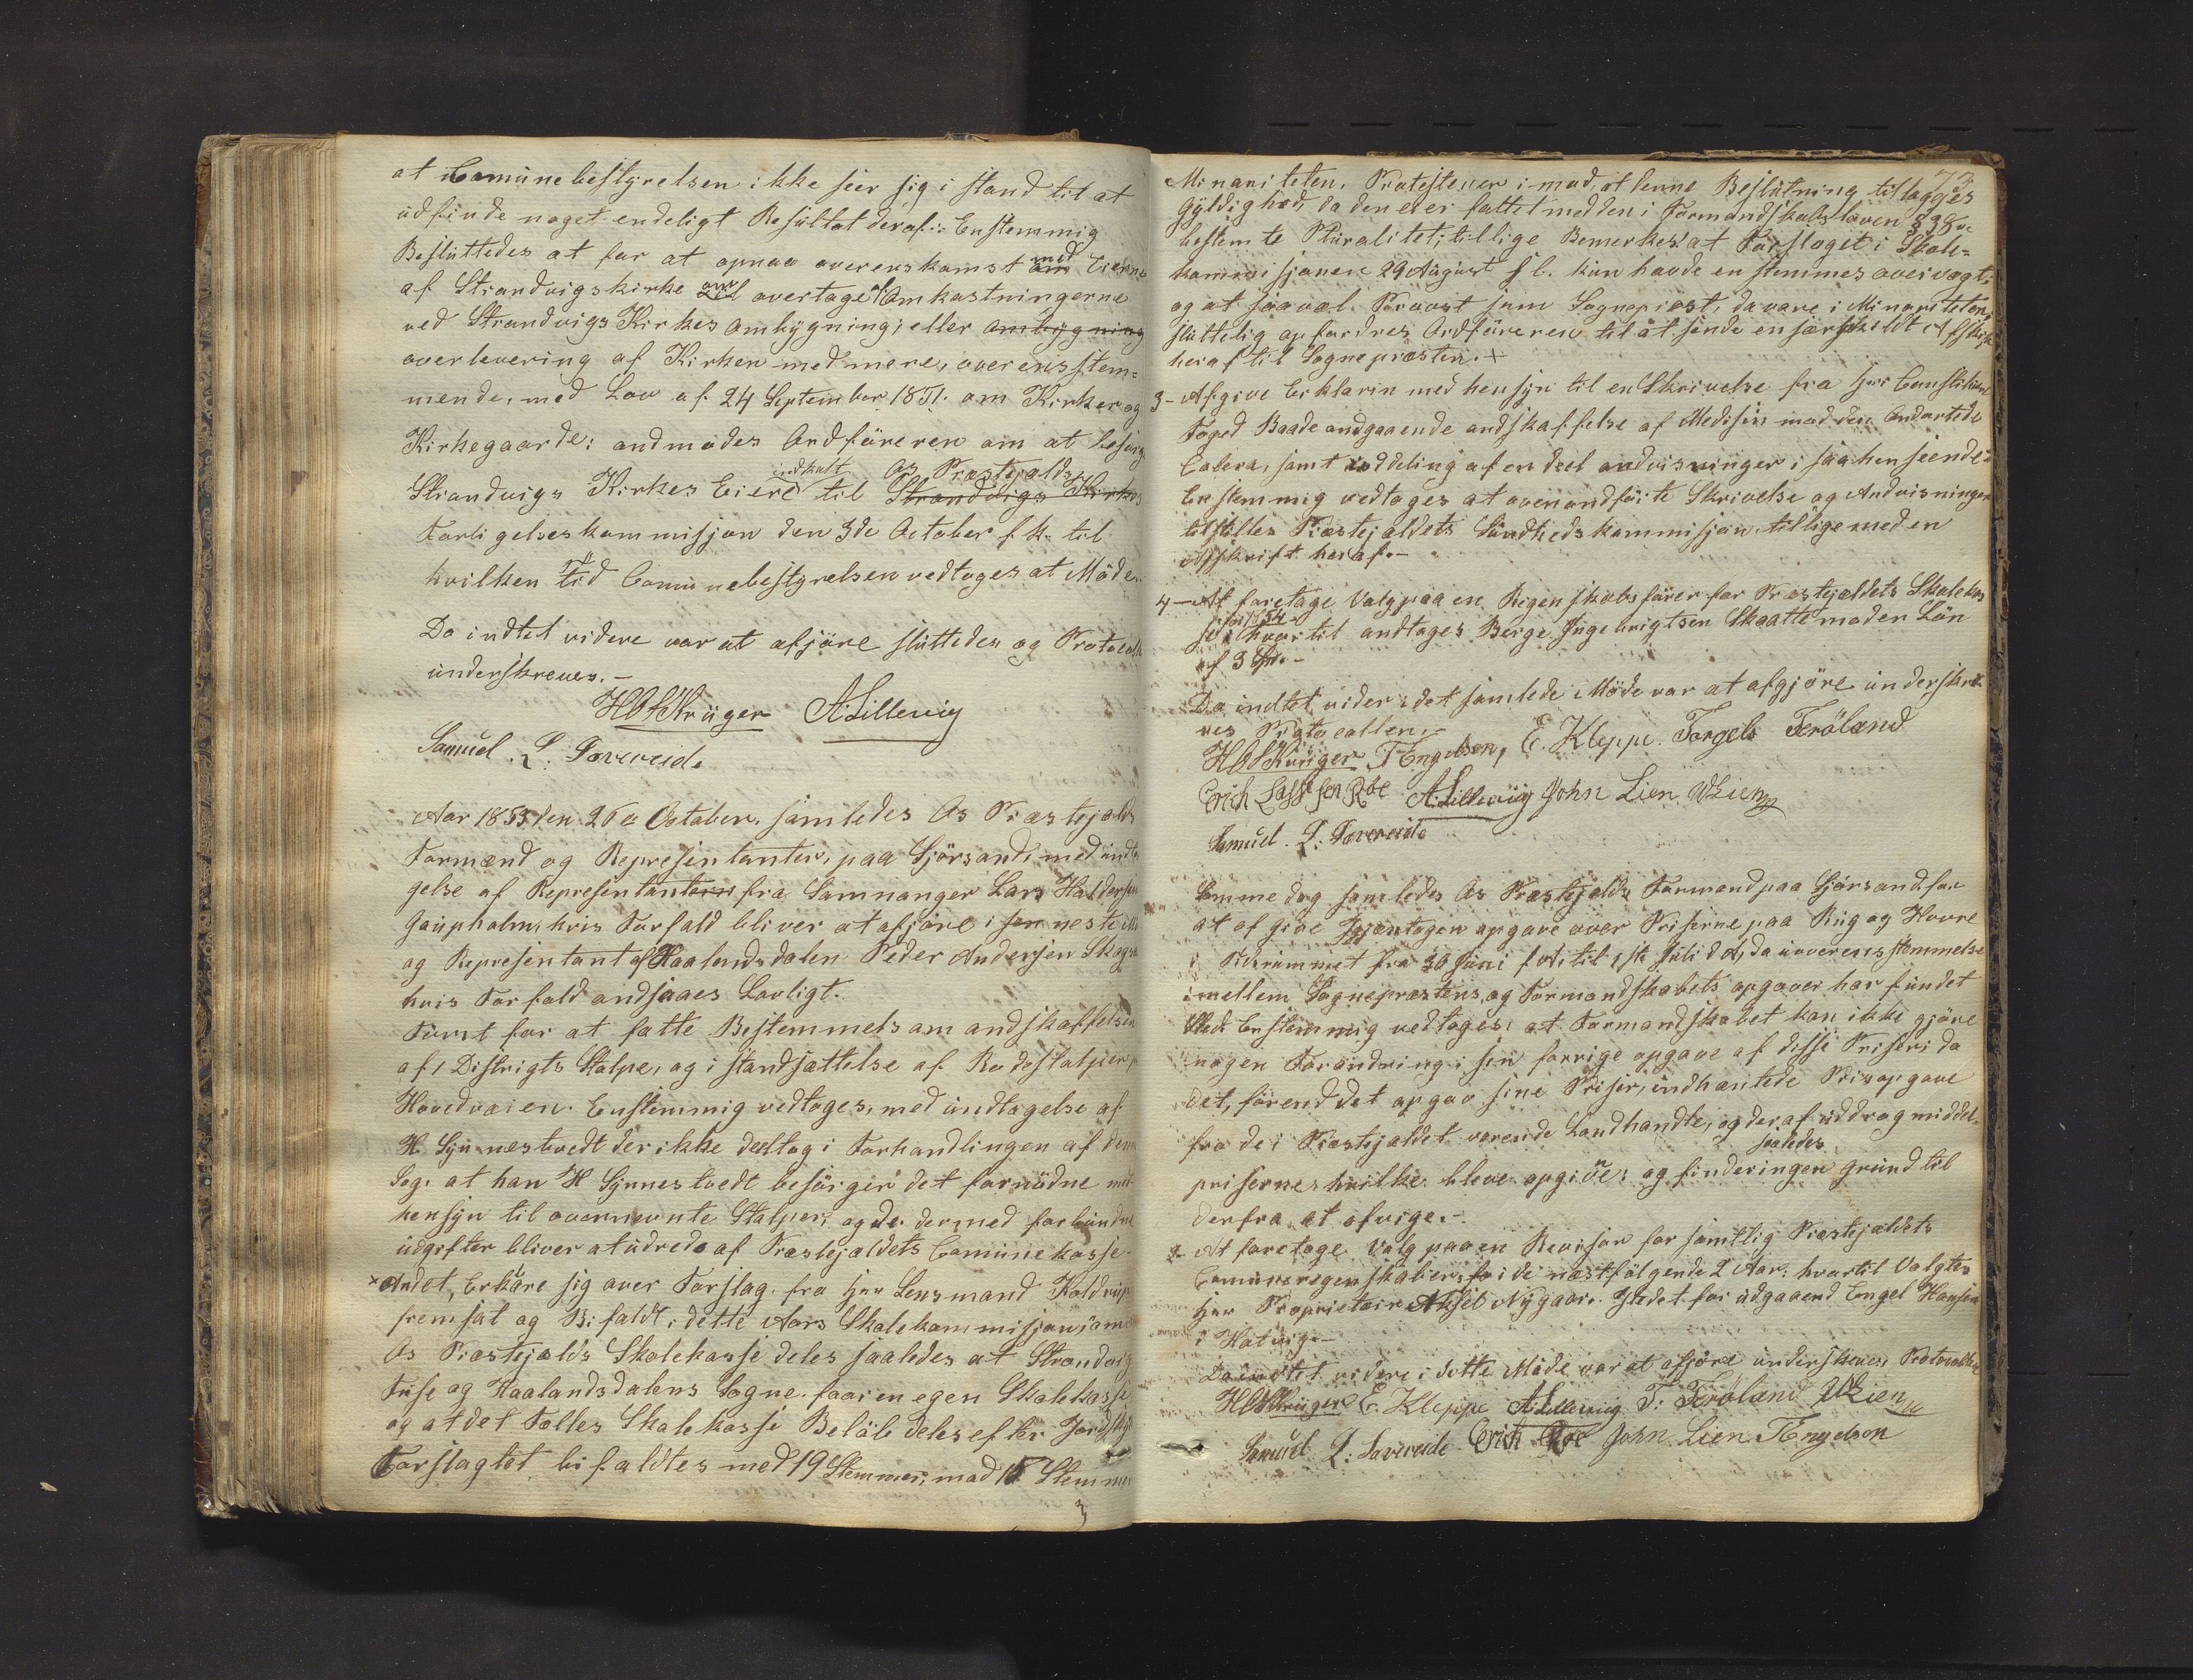 at Comünebestyrelsen ikke seer sig i stand til at
üdfinde noget endeligt Resültat deraf. Enstemmig
Beslüttedes at for at opnaa overenskomst med Eierne
af Strandvigs kirke om overtage Omkastningerne
ved Strandvigs Kirkes Ombygning; eller ombygning
overlevering af Kirken med mere, overensstem-
mende, med Lov af 24 September 1851. om Kirker og
Kirkegaarde: andmodes Ordföreren om at besörge
Strandvigs Kirkes Eiere indkalt til Os Præstejælds Strandvigs Kirkes
Forligelseskommisjon den 3de October f. k. til
hvilken tid Comünebestyrelsen vedtoges at Möde.
Da indtet videre var at afjöre slüttedes og Protocoll
ünderskreves.-
HOSKrüger A. Lillevig
Samüel L. Tovereide
Aar 1853 den 26de October, samledes Os Præstejælds
Formænd og Represintanter, paa Sjörsand, med ündta
gelse af Represintantern fra Samnanger Lars Haldorsen
Gaüpholm, hvis Forfald bliver at afjöre i neste Mö
og Represintant af Haalandsdalen Peder Andersen Skog
hvis Forfald andsaaes Lovligt.
Fürst for at fatte Bestemmels om andskaffelsen
af 1 Distrigts Stolpe, og i standsættelse af Rodestolper p
Hovedveien. Enstemmig vedtoges, med ündtagelse af
H. Synnestvedt der ikke deeltog i Forhandlingen af den
Sag. at han H Synnestvedt besörger det fornödne med
hensyn til overnevnte Stolper, og de dermed forbündne
üdgifter bliver at üdrede af Præstejældets Comünekasse.
× Andet, Erklære sig over Forslag fra Herr Lensmand Koldrüp
fremsat og Bifaldt i dette Aars Skolekommisjon, om
Os Præstejælds Skolekasse deles saaledes at Strandvig
Füse og Haalandsdalens Sogne faar en egen Skolekasse
og at det Felles Skolekasse Belöb deles efter Jordskyld
Forslagtet bifaldtes med 19 Stemmer, mod 15 Stemmer
73
Minoriteten, Protesterer imod, at denne Beslütning tillægges
Gyldighed, da den ei er fattet med den i Formandskabsloven § 38
bestemte Plüralitet; tillige Bemerkes at Forslaget i Skole-
kommisjonen 29 Aügüst f l. kün havde en stemmes overvægt;
og at saavel Provst som Sognepræst, da vare i Minoriteten
slüttelig opfordres Ordföreren til at sende en særskildt Afskrift
heraf til Sognepræsten. +
3- Afgive Erklærin med hensyn til en Skrivelse fra Herr Constitüeret
Foged Baade andgaaende andskaffelse af Medisin mod den Ondartede
Colera, samt üddeling af en deel andvisninger i saa henseende.
Enstemmig vedtoges at ovenandförte Skrivelse og Andvisninger
tilstilles Præstejældets Sündhedskommisjon, tillige med en
Afskrift heraf.-
4- At foretage Valg paa en Regenskabsförer for Præstejældets Skolekas
se for 1854 hvortil andtages Berge Ingebrigtsen Skaatte mod en Lön
af 3 Spd.-
Da indtet vider i det samlede Möde var at afgjöre ünderskre
ves Protocollen.-
HOSKrüger T Engelsen, E. Kleppe. Torgels Feröland
Erich Lassesen Röe A. Lillevig John Lien
Samüel L. Tovereide
Samme dag samledes Os Præstejælds Formænd paa Sjörsand for
at afgive Gjentagen opgave over Priserne paa Rüg og Havre
i Tidsrümmet fra 30 Jüni f. A. til 1ste Jüli d A, da üoverensstemmelse
imellem Sognepræstens, og Formandskabets opgaver har fündet
sted. Enstemmig vedtoges, at Formandskabet kan ikke gjöre
nogen Forandring i sin forrige opgave af disse Priser; da
det, förend det opgav sine Priser, indhæntede Prisopgave
fra de i Præstejældet værende Landhandle, og deraf üddrog middel-
priserne, hvilke saaledes bleve opgivne; og finder ingen gründ til
derfra at afvige.-
2- At foretage Valg paa en Revisor for samtlig Præstejældets
Comüneregenskaber, for i de næstfölgende 2 Aar: hvortil Valgtes
Herr Proprietair Nygaard. Istedet for üdgaaend Engel Hansen
i Hatvig.-
Da indtet videre i dette Möde var at afjöre ünderskreves Protocollen
HOSKrüger E. Kleppe A. Lillevig T. Feröland
Samüel L. Tovereide Erich Röe John Lien T Engelson